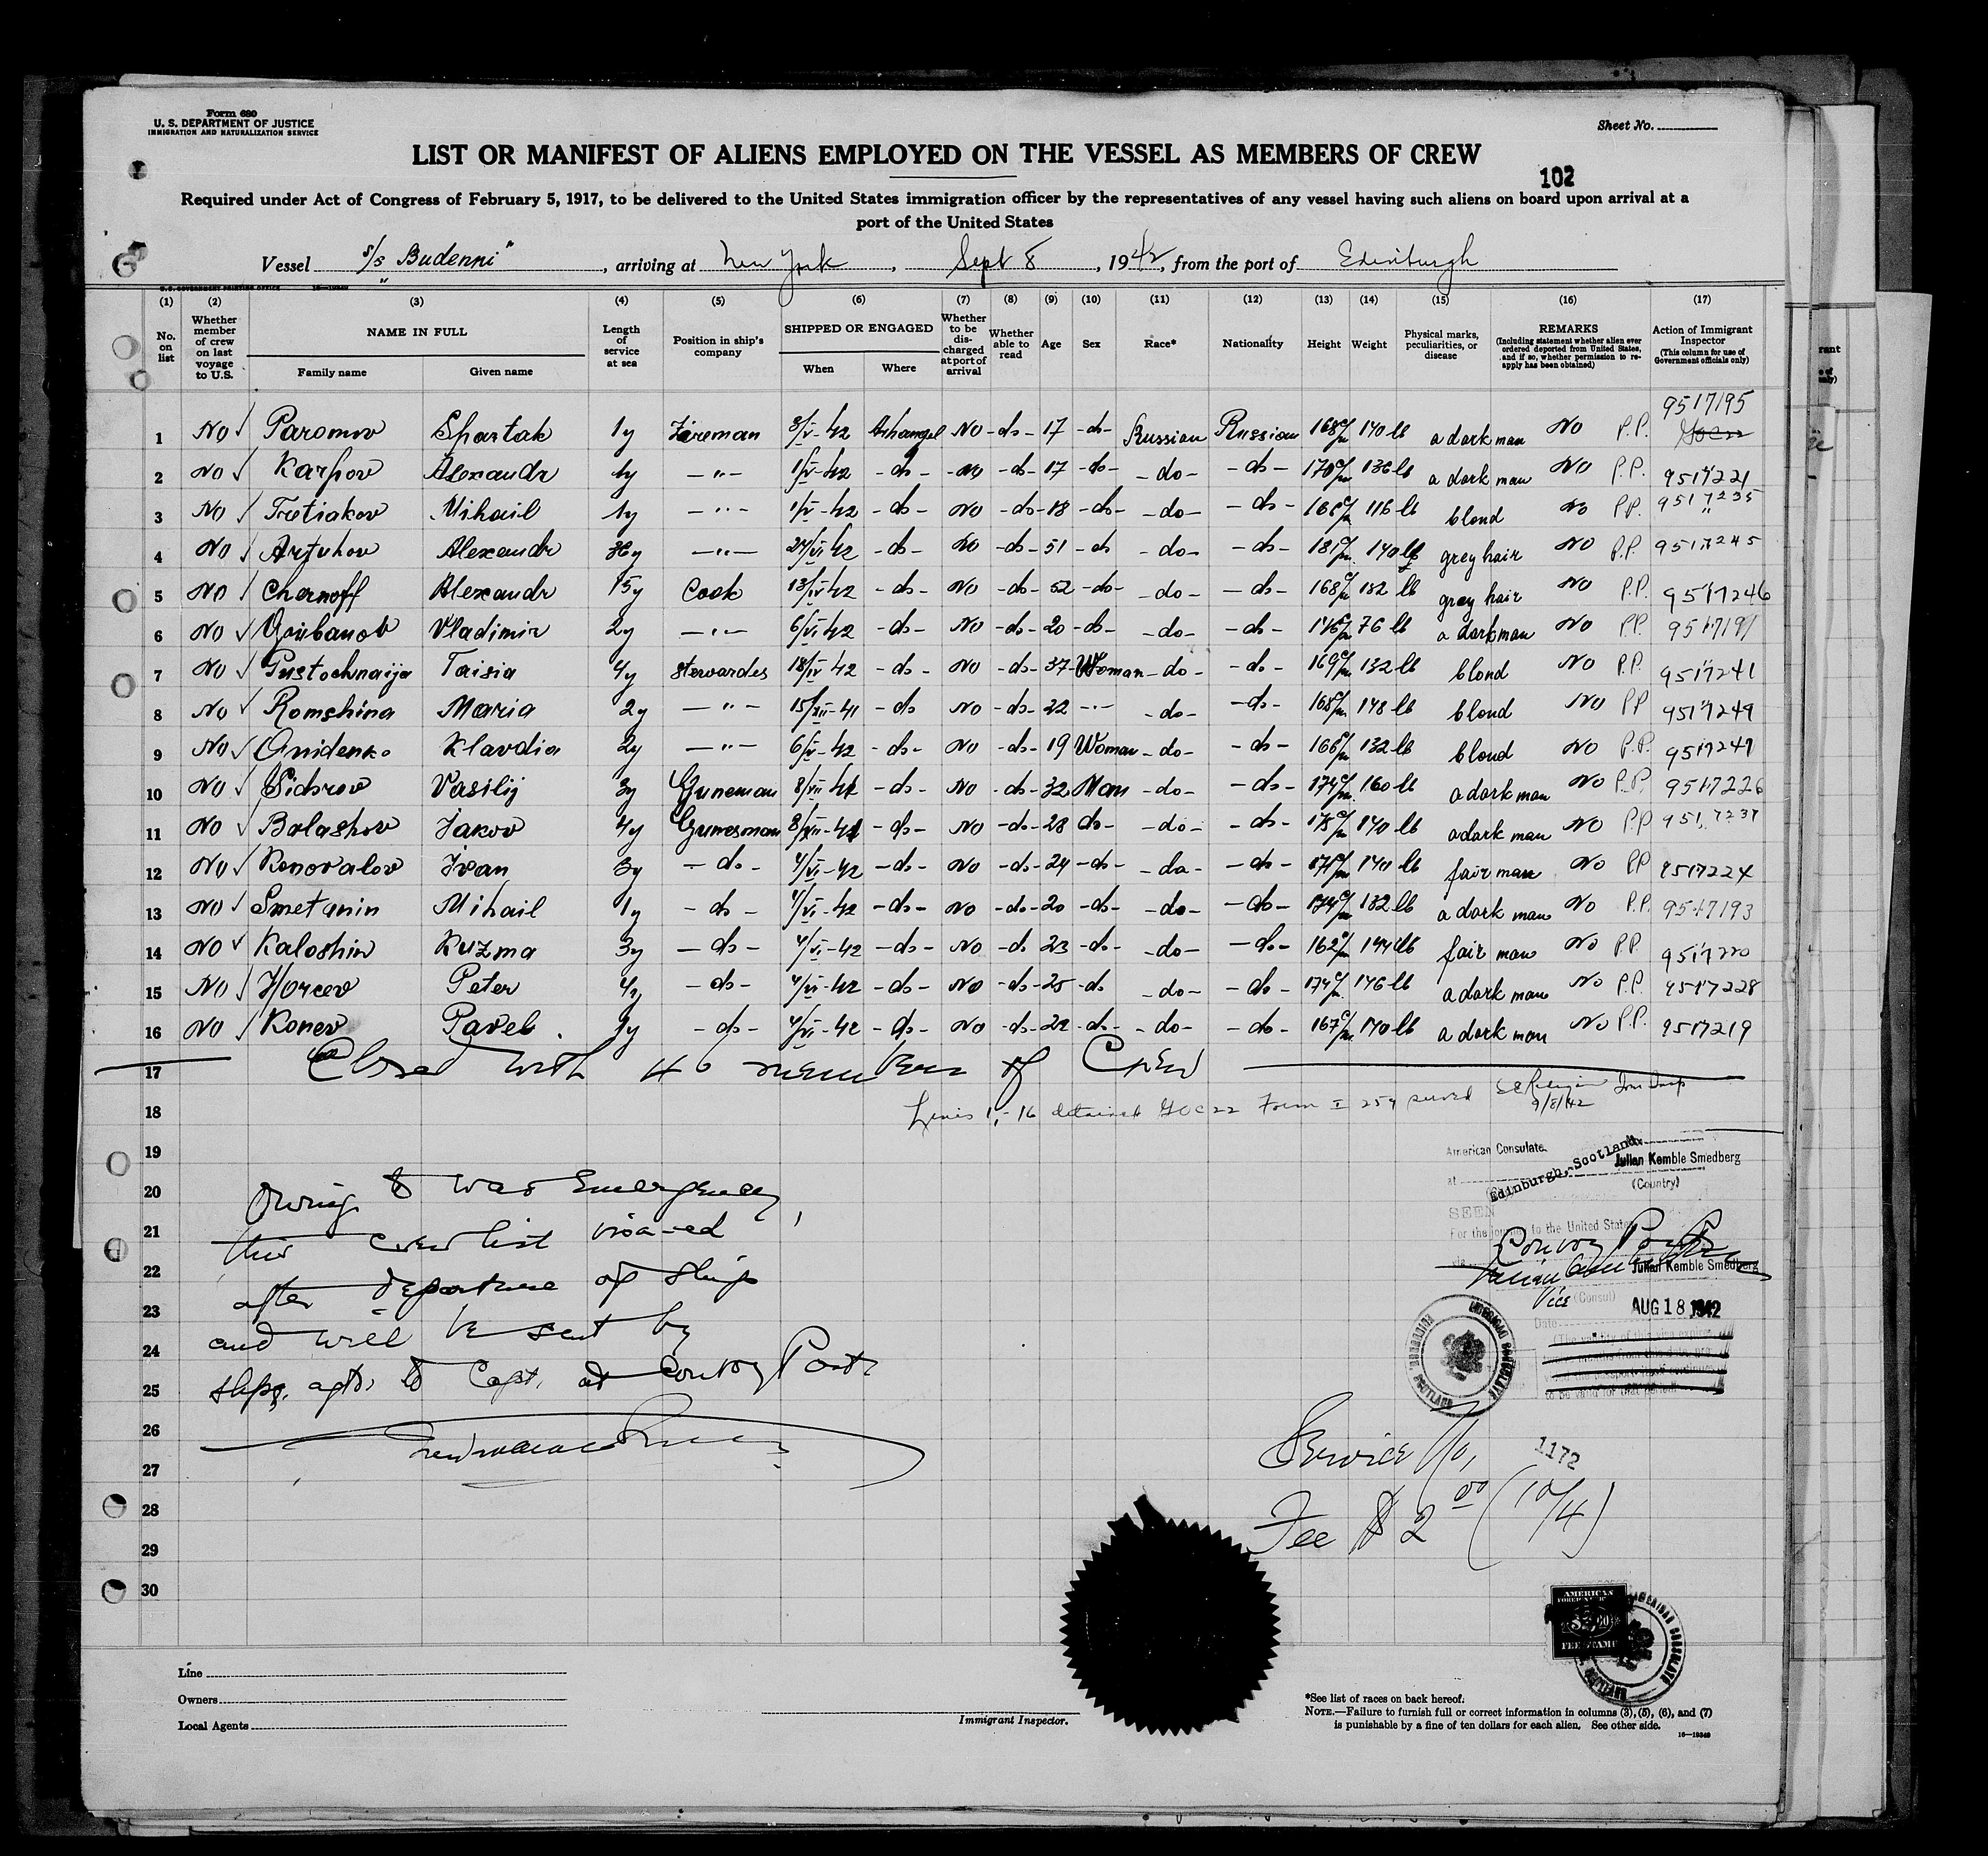 Form 680
U. S. DEPARTMENT OF JUSTICE
IMMIGRATION AND NATURALIZATION SERVICE
Sheet No.
LIST OR MANIFEST OF ALIENS EMPLOYED ON THE VESSEL AS MEMBERS OF CREW
102
Required under Act of Congress of February 5, 1917, to be delivered to the United States immigration officer by the representatives of any vessel having such aliens on board upon arrival at a
port of the United States
Vessel s/s "Budenni", arriving at New York, Sept 8, 1942, from the port of Edinburgh
(1) (2) (3) (4) (5) (6) (7) (8) (9) (10) (11) (12) (13) (14) (15) (16) (17)
No. on list
Whether member of crew on last voyage to U.S.
NAME IN FULL
Family name
Given name
Length of service at sea
Position in ship's company
SHIPPED OR ENGAGED
When
Where
Whether to be discharged at port of arrival
Whether able to read
Age
Sex
Race*
Nationality
Height
Weight
Physical marks, peculiarities, or disease
REMARKS
(Including statement whether alien ever ordered deported from United States, and if so, whether permission to reapply has been obtained)
Action of Immigrant Inspector
(This column for use of Government officials only)
1 No Paromov Spartak 1y Fireman 3/V-42 Arhangel No -do- 17 -do- Russian Russian 168 c/m 140 lb a dark man No P.P. 9517195
2 No Karpov Alexandr 1y -"- 1/V-42 -do- No -do- 17 -do- -do- -do- 170 c/m 136 lb a dark man No P.P. 9517221
3 No Tretiakov Mihail 1y -"- 1/V-42 -do- No -do- 18 -do- -do- -do- 116 lb blond No P.P. 9517235
4 No Artuhov Alexandr -"- 24/VI 42 -do- No -do- 51 -do -do- -do- 140 lb grey hair No P.P. 9517245
5 No Chernoff Alexandr 15y Cook 13/IV 42 -do- No -do- 52 -do- -do- -do- 168 c/m 132 lb grey hair No P.P. 9517246
6 No Goubanov Vladimir 2y -"- 6/VI 42 -do- No -do- 20 -do- -do- -do- 76 lb a dark man No P.P. 9517191
7 No Pustochnaija Taisia 4y Stewardes 18/IV-42 -do- No -do- 37 Woman -do- -do- 169 c/m 132 lb blond No P.P. 9517241
8 No Romshina Maria 2y -"- 15/XII-41 -do No -do- 22 -"- -do- -do- 168 c/m 148 lb blond No P.P 9517249
9 No Klavdia 2y -"- 42 -do- No -do- 19 Woman -do- -do- 132 lb blond No P.P. 9517247
10 No Sidorov Vasilij 3y Guneman 8/VII-41 -do- No -do- 32 Man -do- -do- 174 c/m 160 lb a dark man No P.P. 9517226
11 No Balashov Jakov 4y Gunesman 8/XII-41 -do- No -do- 28 do- -do- -do- 140 lb a dark man No P.P 9517237
12 No Konovalov Ivan 3y -do- 4/VI-42 -do- No -do- 24 -do- -do- -do- 171 c/m 140 lb fair man No P.P 9517224
13 No Smetanin Mihail 1y -do- 4/VI-42 -do- No -do- 20 -do- -do- -do- 132 lb a dark man No P.P. 9517193
14 No Kaloshin Kuzma 3y -do- 4/VI-42 -do- No -do 23 -do- -do- -do- 162 c/m 144 lb fair man No P.P 9517220
15 No Horcev Peter 4y -do- 4/VI-42 -do- No -do- 25 -do -do- -do- 174 c/m 146 lb a dark man No P.P. 9517228
16 No Konev Pavel. -do- 4/VI-42 -do- No -do- 22 -do- -do- -do- 167 c/m 140 lb a dark man No P.P. 9517219
17 Closed with 46 members of Crew
18 Lines 1-16 detained Form I 259 served 9/8/42 Imm Insp
19
20
21
22
23
24
25
26
27
28
29
30
Owing to war Emergency,
this crew list visa-ed
after departure of ship
and will be sent by
ships. agts. to Capt. at Convoy Port
American Consulate
at Edinburgh, Scotland
Julian Kemble Smedberg
(Country)
SEEN
For the journey to the United States
via Convoy Port
Julian Kemble Smedberg
Vice (Consul)
Date AUG 18 1942
AMERICAN CONSULATE
EDINBURGH, SCOTLAND
Service No. 1172
Fee $2.00 (10/4)
AMERICAN
FEE STAMP
AMERICAN CONSULATE
Line
Owners
Local Agents
Immigrant Inspector.
*See list of races on back hereof.
NOTE.—Failure to furnish full or correct information in columns (3), (5), (6), and (7)
is punishable by a fine of ten dollars for each alien. See other side.